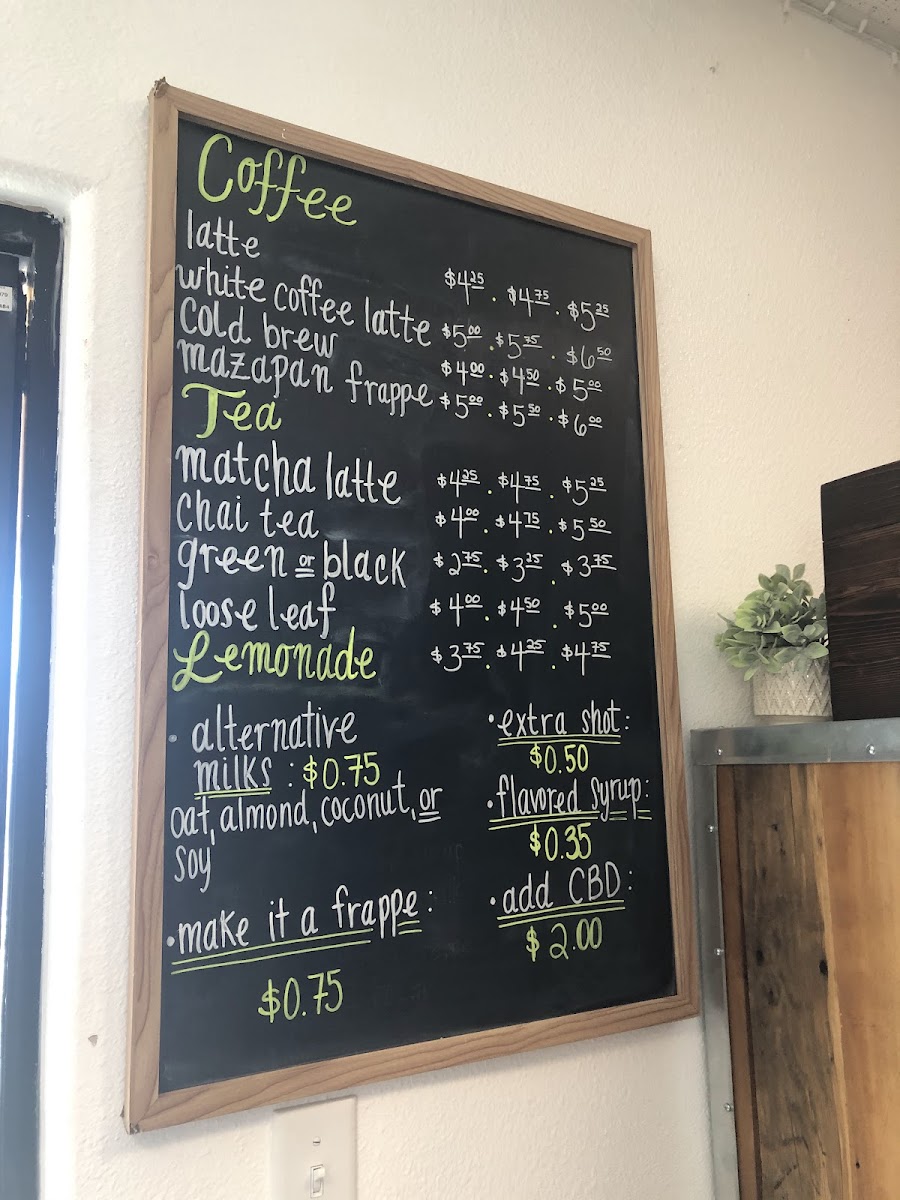 Coffee
latte $4.25 . $4.75 . $5.25
white coffee latte $5.00 . $5.75 . $6.50
cold brew $4.00 . $4.50 . $5.00
mazapan frappe $5.00 . $5.50 . $6.00
Tea
matcha latte $4.25 . $4.75 . $5.25
chai tea $4.00 . $4.75 . $5.50
green or black $2.75 . $3.25 . $3.75
loose leaf $4.00 . $4.50 . $5.00
Lemonade $3.75 . $4.25 . $4.75
• alternative
milks : $0.75
oat, almond, coconut, or
soy
• make it a frappe :
$0.75
• extra shot :
$0.50
• flavored syrup :
$0.35
• add CBD :
$2.00